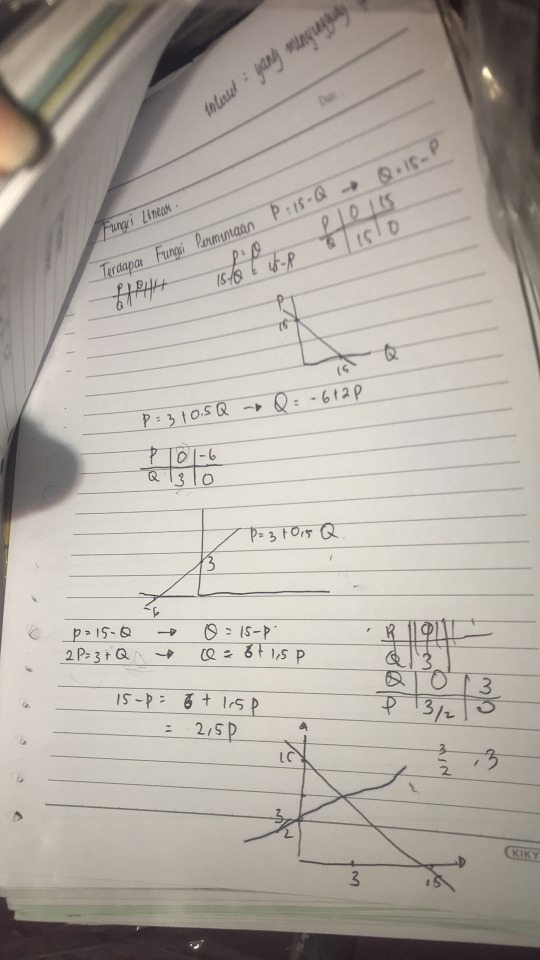 Interest = yang menyinggung
Date:
Fungsi Linear.
Terdapat Fungsi Permintaan P = 15 - Q → Q = 15 - P
P = Q
15 - Q = 15 - P
P | 0 | 15
Q | 15 | 0
P
15
Q
15
P = 3 + 0.5 Q → Q = -6 + 2P
P | 0 | -6
Q | 3 | 0
P = 3 + 0,5 Q
3
-6
P = 15 - Q → Q = 15 - P
2P = 3 + Q → Q = 6 + 1,5 P
Q | 3
Q | 0 | 3
P | 3/2 | 0
15 - P = 6 + 1,5 P
= 2,5 P
3/2 . 3
15
3/2
3
15
KIKY